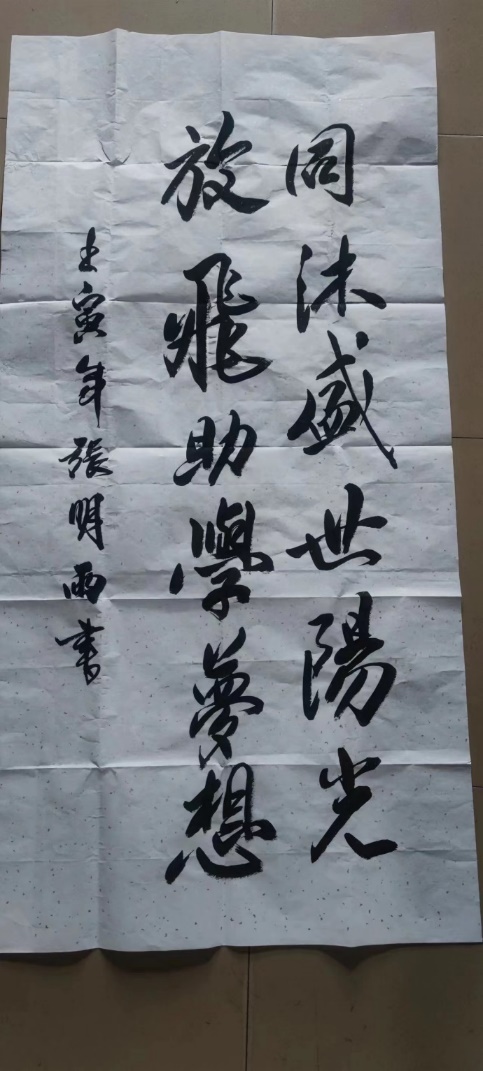 同沐盛世陽光
放飛助學夢想
壬寅年張明雨書